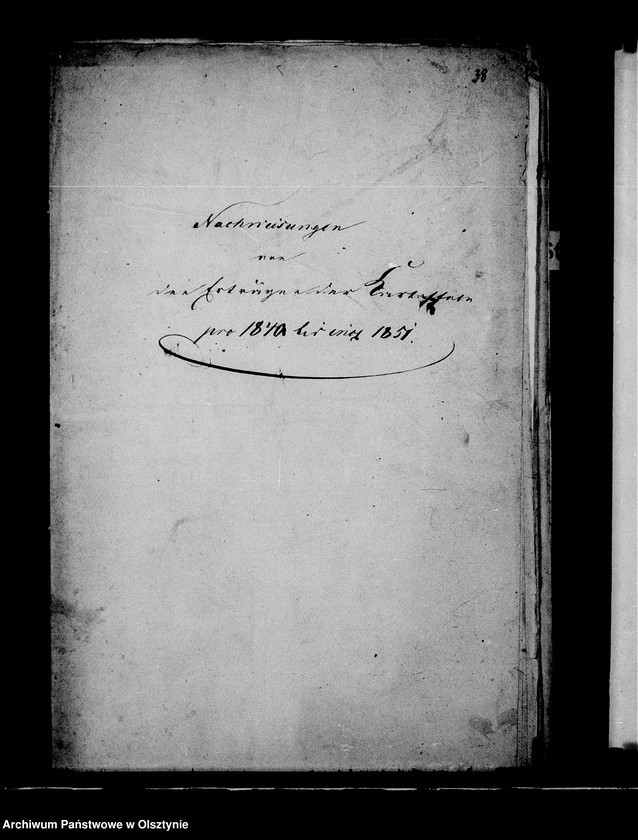 38
Nachweisungen
von
den Erträgen der
pro 1840 bis incl 1851.
Archiwum Państwowe w Olsztynie